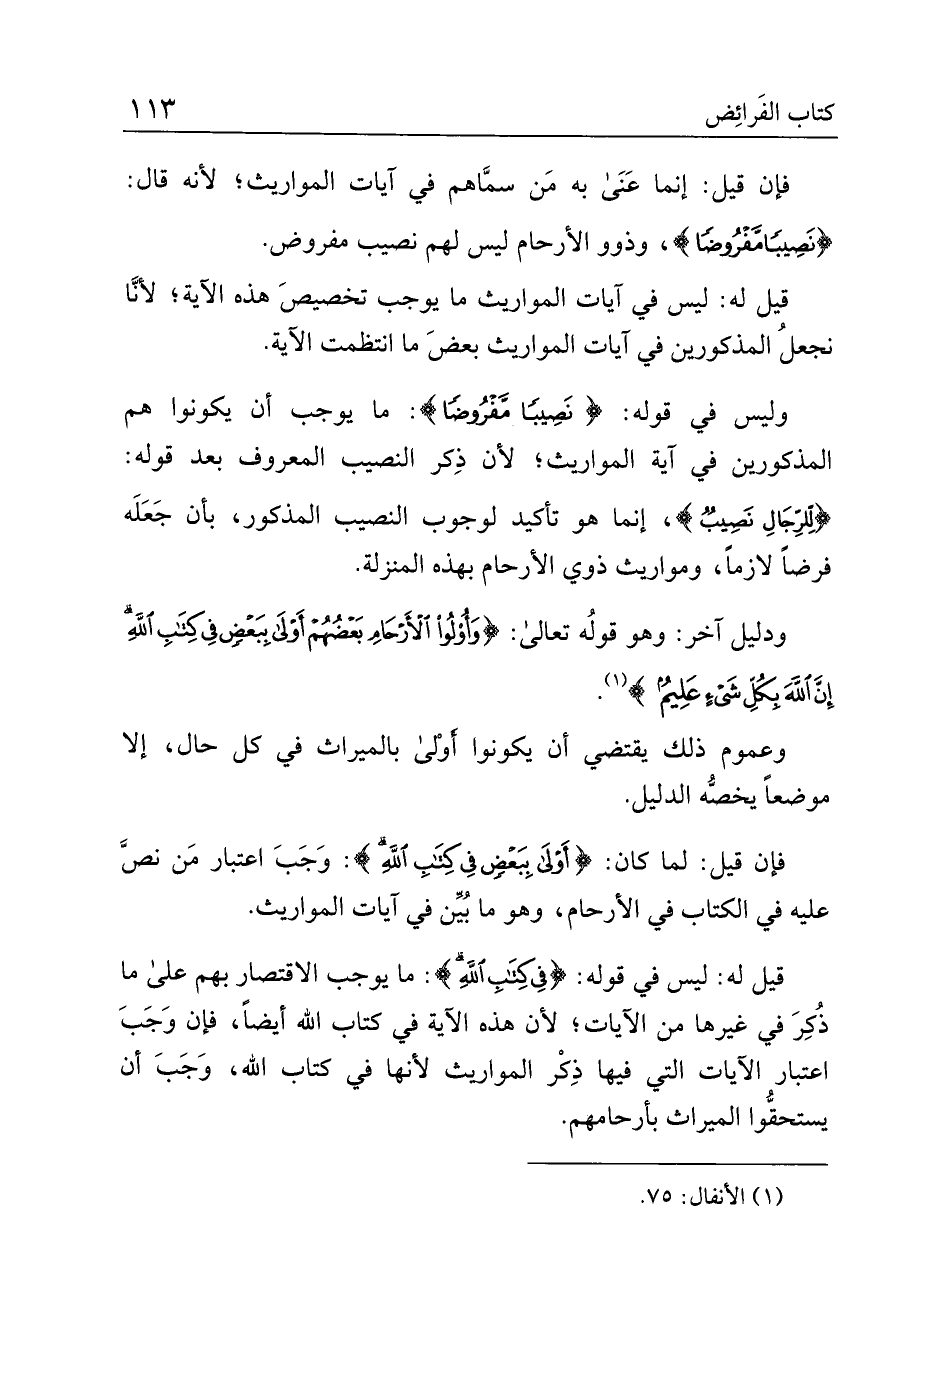 كتاب الفَرائِض ١١٣
فإن قيل: إنما عَنَىٰ به مَن سمَّاهم في آيات المواريث؛ لأنه قال:
﴿نَصِيبًا مَّفْرُوضًا﴾، وذوو الأرحام ليس لهم نصيب مفروض.
قيل له: ليس في آيات المواريث ما يوجب تخصيصَ هذه الآية؛ لأنَّا
نجعلُ المذكورين في آيات المواريث بعضَ ما انتظمت الآية.
وليس في قوله: ﴿نَصِيبًا مَّفْرُوضًا﴾: ما يوجب أن يكونوا هم
المذكورين في آية المواريث؛ لأن ذِكر النصيب المعروف بعد قوله:
﴿لِّلرِّجَالِ نَصِيبٌ﴾، إنما هو تأكيد لوجوب النصيب المذكور، بأن جَعَلَه
فرضاً لازماً، ومواريث ذوي الأرحام بهذه المنزلة.
ودليل آخر: وهو قولُه تعالىٰ: ﴿وَأُوْلُواْ ٱلْأَرْحَامِ بَعْضُهُمْ أَوْلَىٰ بِبَعْضٍ فِي كِتَٰبِ ٱللَّهِۗ
إِنَّ ٱللَّهَ بِكُلِّ شَىْءٍ عَلِيمٌۢ﴾(١).
وعموم ذلك يقتضي أن يكونوا أَوْلىٰ بالميراث في كل حال، إلا
موضعاً يخصُّه الدليل.
فإن قيل: لما كان: ﴿أَوْلَىٰ بِبَعْضٍ فِي كِتَٰبِ ٱللَّهِۗ﴾: وَجَبَ اعتبار مَن نصَّ
عليه في الكتاب في الأرحام، وهو ما بُيِّن في آيات المواريث.
قيل له: ليس في قوله: ﴿فِي كِتَٰبِ ٱللَّهِۗ﴾: ما يوجب الاقتصار بهم علىٰ ما
ذُكِرَ في غيرها من الآيات؛ لأن هذه الآية في كتاب الله أيضاً، فإن وَجَبَ
اعتبار الآيات التي فيها ذِكْر المواريث لأنها في كتاب الله، وَجَبَ أن
يستحقُّوا الميراث بأرحامهم.
(١) الأنفال: ٧٥.